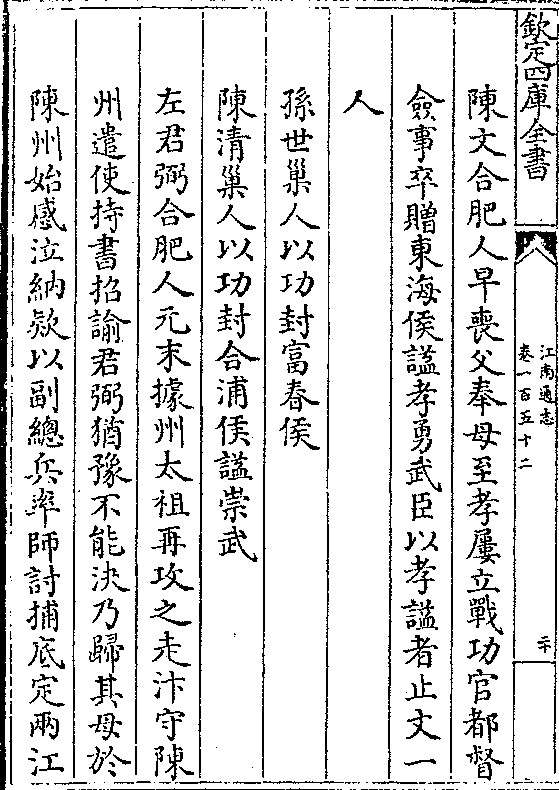 欽定四庫全書
江南通志
卷一百五十二
二十
陳文合肥人早喪父奉母至孝屢立戰功官都督
僉事卒贈東海侯諡孝勇武臣以孝諡者止文一
人
孫世巢人以功封富春侯
陳清巢人以功封合浦侯諡崇武
左君弼合肥人元末據州太祖再攻之走汴守陳
州遣使持書招諭君弼猶豫不能決乃歸其母於
陳州始感泣納欵以副總兵率師討捕底定兩江